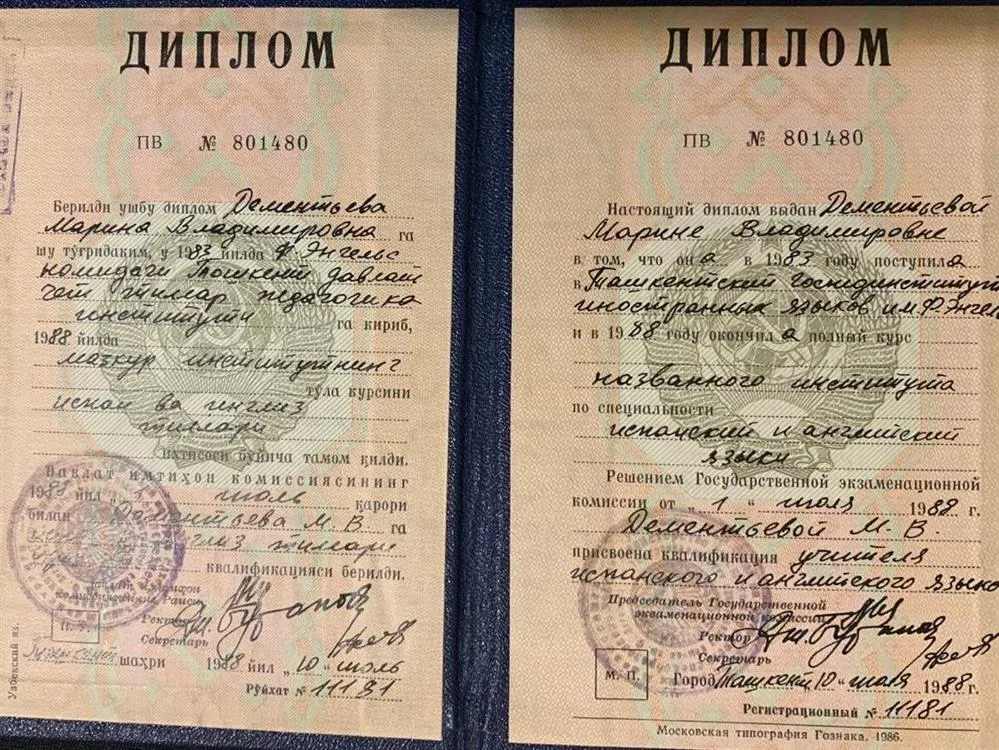 ДИПЛОМ
ПВ № 801480
Берилди ушбу диплом Дементьева
Марина Владимировна га
шу тўғридаким, у 1983 йилда Ф. Энгельс
номидаги Тошкент давлат
чет тиллар педагогика
институти га кириб,
1988 йилда
мазкур институтнинг
тўла курсини
испан ва инглиз
тиллари
ихтисоси бўйича тамом қилди.
Давлат имтиҳон комиссиясининг
1988 йил „1 июль қарори
билан Дементьева М. В. га
инглиз тиллари
квалификацияси берилди.
Давлат имтиҳон
комиссиясининг Раиси
Ректор
Секретарь
П. У.
шаҳри 1988 йил „10" июль
Рўйхат № 11181
Узбекский яз.
ДИПЛОМ
ПВ № 801480
Настоящий диплом выдан Дементьевой
Марине Владимировне
в том, что она в 1983 году поступила
в Ташкентский Госпединститут
иностранных языков им. Ф. Энгел
и в 1988 году окончила полный курс
названного института
по специальности
испанский и английский
языки
Решением Государственной экзаменационной
комиссии от „1" июля 1988 г.
Дементьевой М. В.
присвоена квалификация учителя
испанского и английского языко
Председатель Государственной
экзаменационной комиссии
Ректор
Секретарь
М. П.
Город Ташкент 10 " июля 1988 г.
Регистрационный № 11181
Московская типография Гознака. 1986.